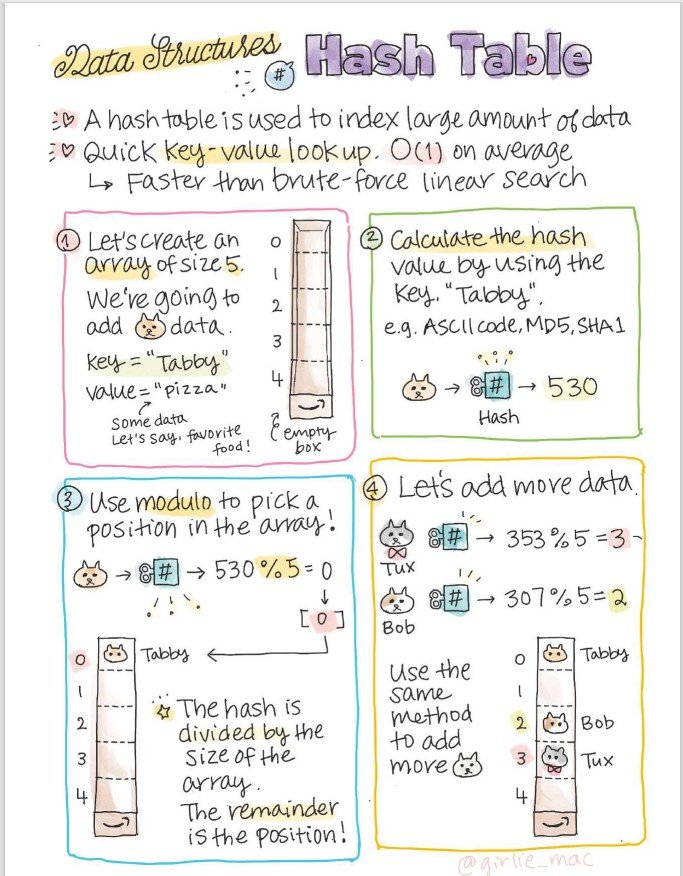 Data Structures
# Hash Table
A hash table is used to index large amount of data
Quick key-value look up. O(1) on average
↳ Faster than brute-force linear search
1 Let's create an
array of size 5.
We're going to
add data.
key = "Tabby"
value = "pizza"
Some data
Let's say, favorite
food!
0
1
2
3
4
empty
box
2 Calculate the hash
value by using the
key, "Tabby".
e.g. ASCII code, MD5, SHA1
→ # → 530
Hash
3 Use modulo to pick a
position in the array!
→ # → 530 % 5 = 0
[0]
0 Tabby
1
2
3
4
☆ The hash is
divided by the
size of the
array.
The remainder
is the position!
4 Let's add more data.
# → 353 % 5 = 3
Tux
# → 307 % 5 = 2
Bob
Use the
same
method
to add
more
0 Tabby
1
2 Bob
3 Tux
4
@girlie_mac